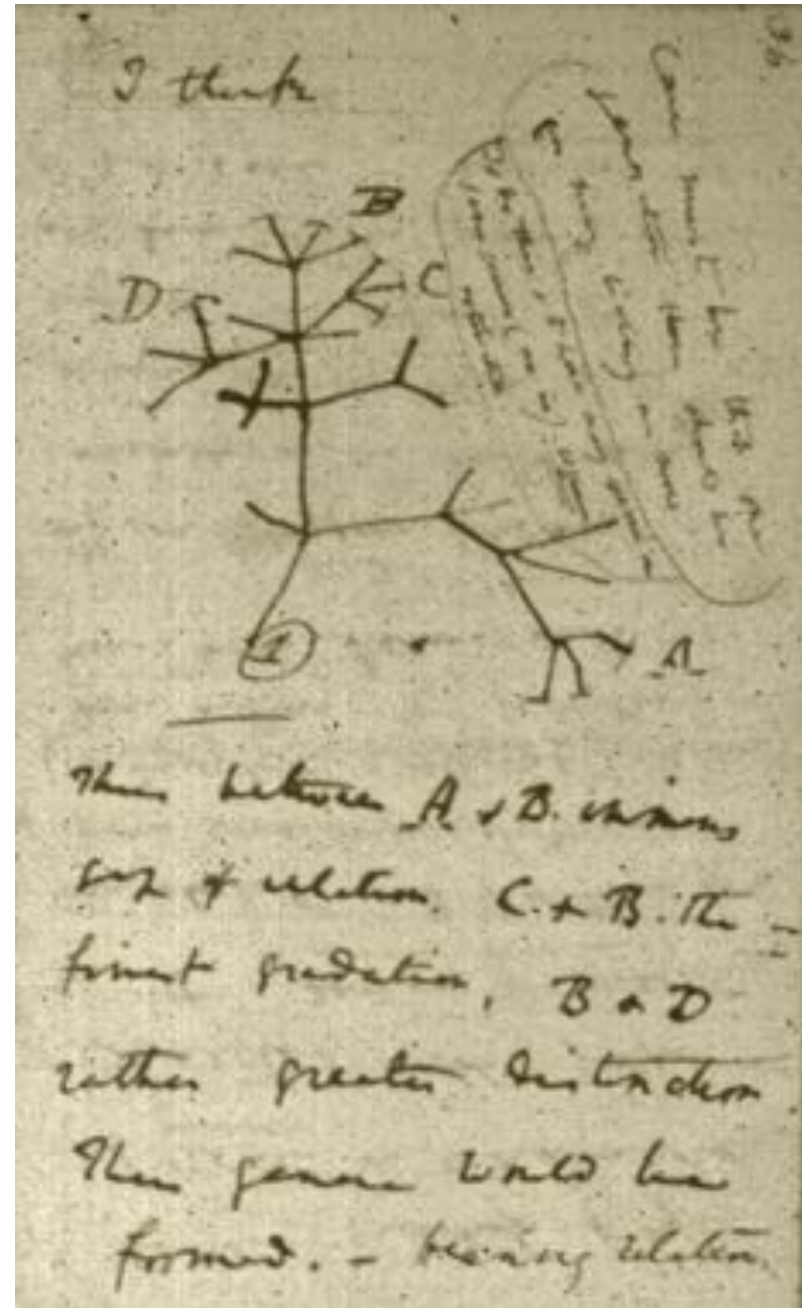 36
I think
Case must be that one
generation then should be
as many living as now
To do this & to have many species in
same genus (as is). requires
extinction
B
D
C
1
A
Thus between A & B. immens
gap of relation. C. & B. The
finest gradation, B & D
rather greater distinction.
Thus genera would be
formed. — bearing relation